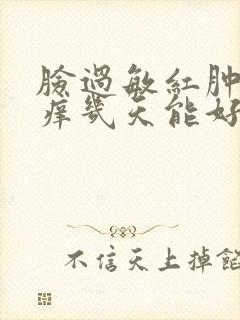 臉過敏紅肿
痒幾天能好
不信天上掉餡